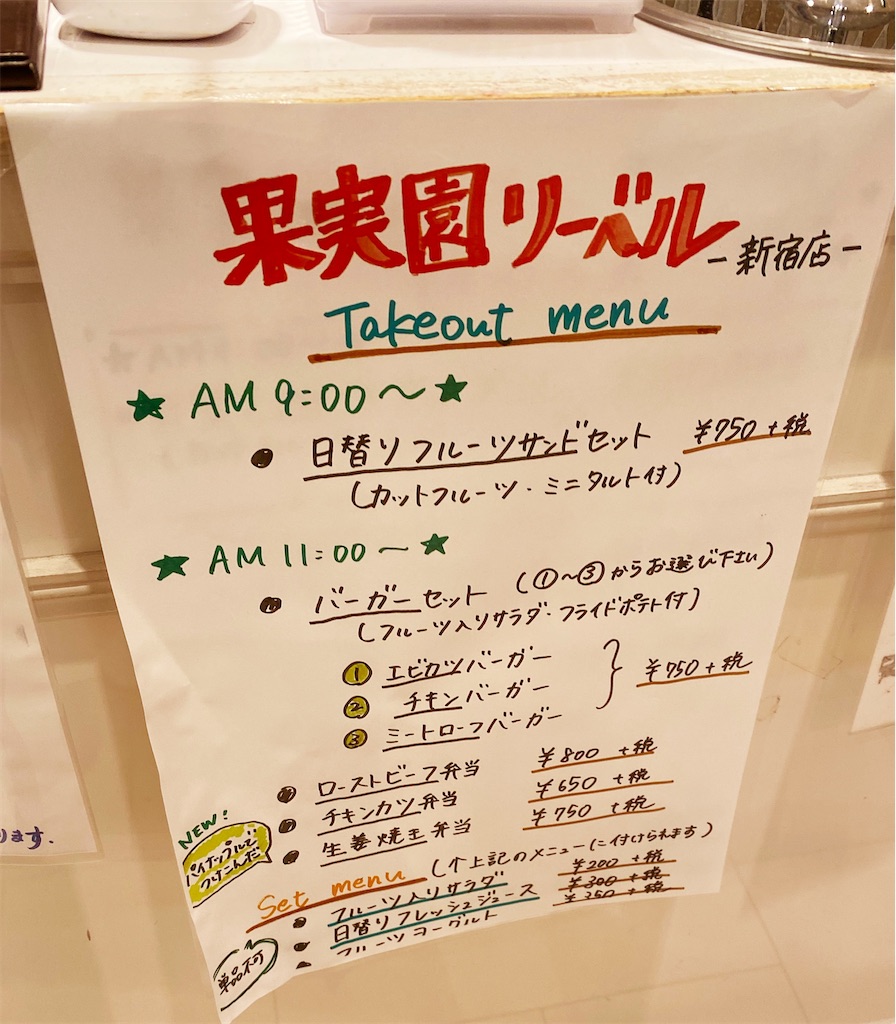 果実園リーベル
－新宿店－
Takeout menu
★ AM 9:00～★
● 日替りフルーツサンドセット ¥750 +税
(カットフルーツ・ミニタルト付)
★ AM 11:00～★
● バーガーセット (①～③からお選び下さい)
(フルーツ入りサラダ・フライドポテト付)
① エビカツバーガー
② チキンバーガー
③ ミートローフバーガー
¥750+税
● ローストビーフ弁当 ¥800 +税
● チキンカツ弁当 ¥650 +税
● 生姜焼き弁当 ¥750 +税
NEW!
パイナップルで
つけこんだ
Set menu (↑上記のメニューに付けられます)
● フルーツ入りサラダ ¥200 +税
● 日替りフレッシュジュース ¥300 +税
● フルーツヨーグルト ¥350 +税
単品不可
ります.